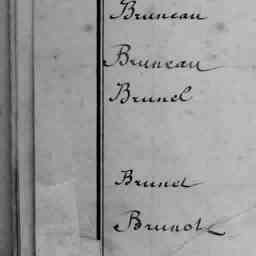 Bruneau
Bruneau
Brunel
Brunet
Brunot